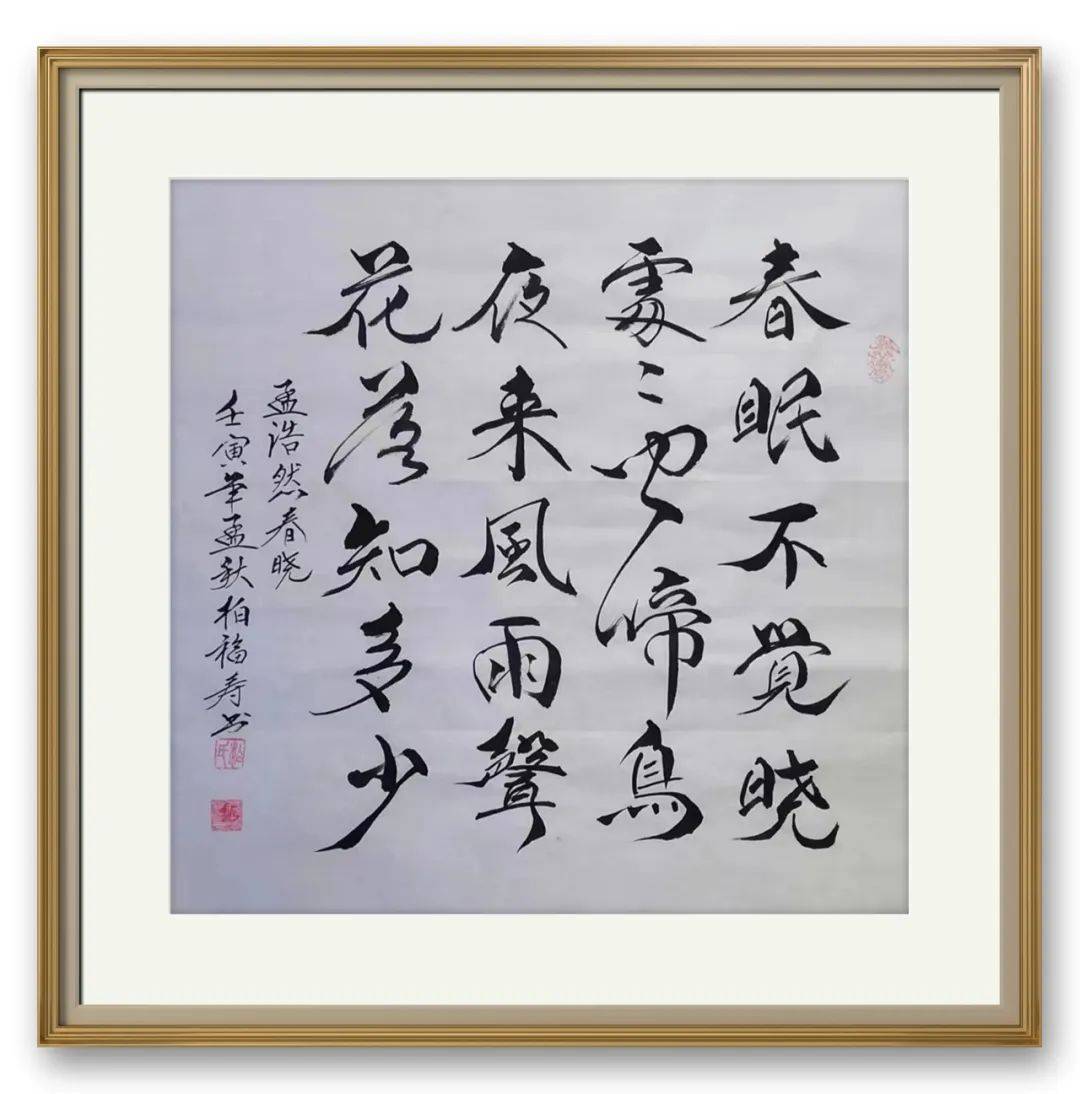 春眠不覺晓
處々聞啼鳥
夜来風雨聲
花落知多少
孟浩然春晓
壬寅年孟秋柏福寿书